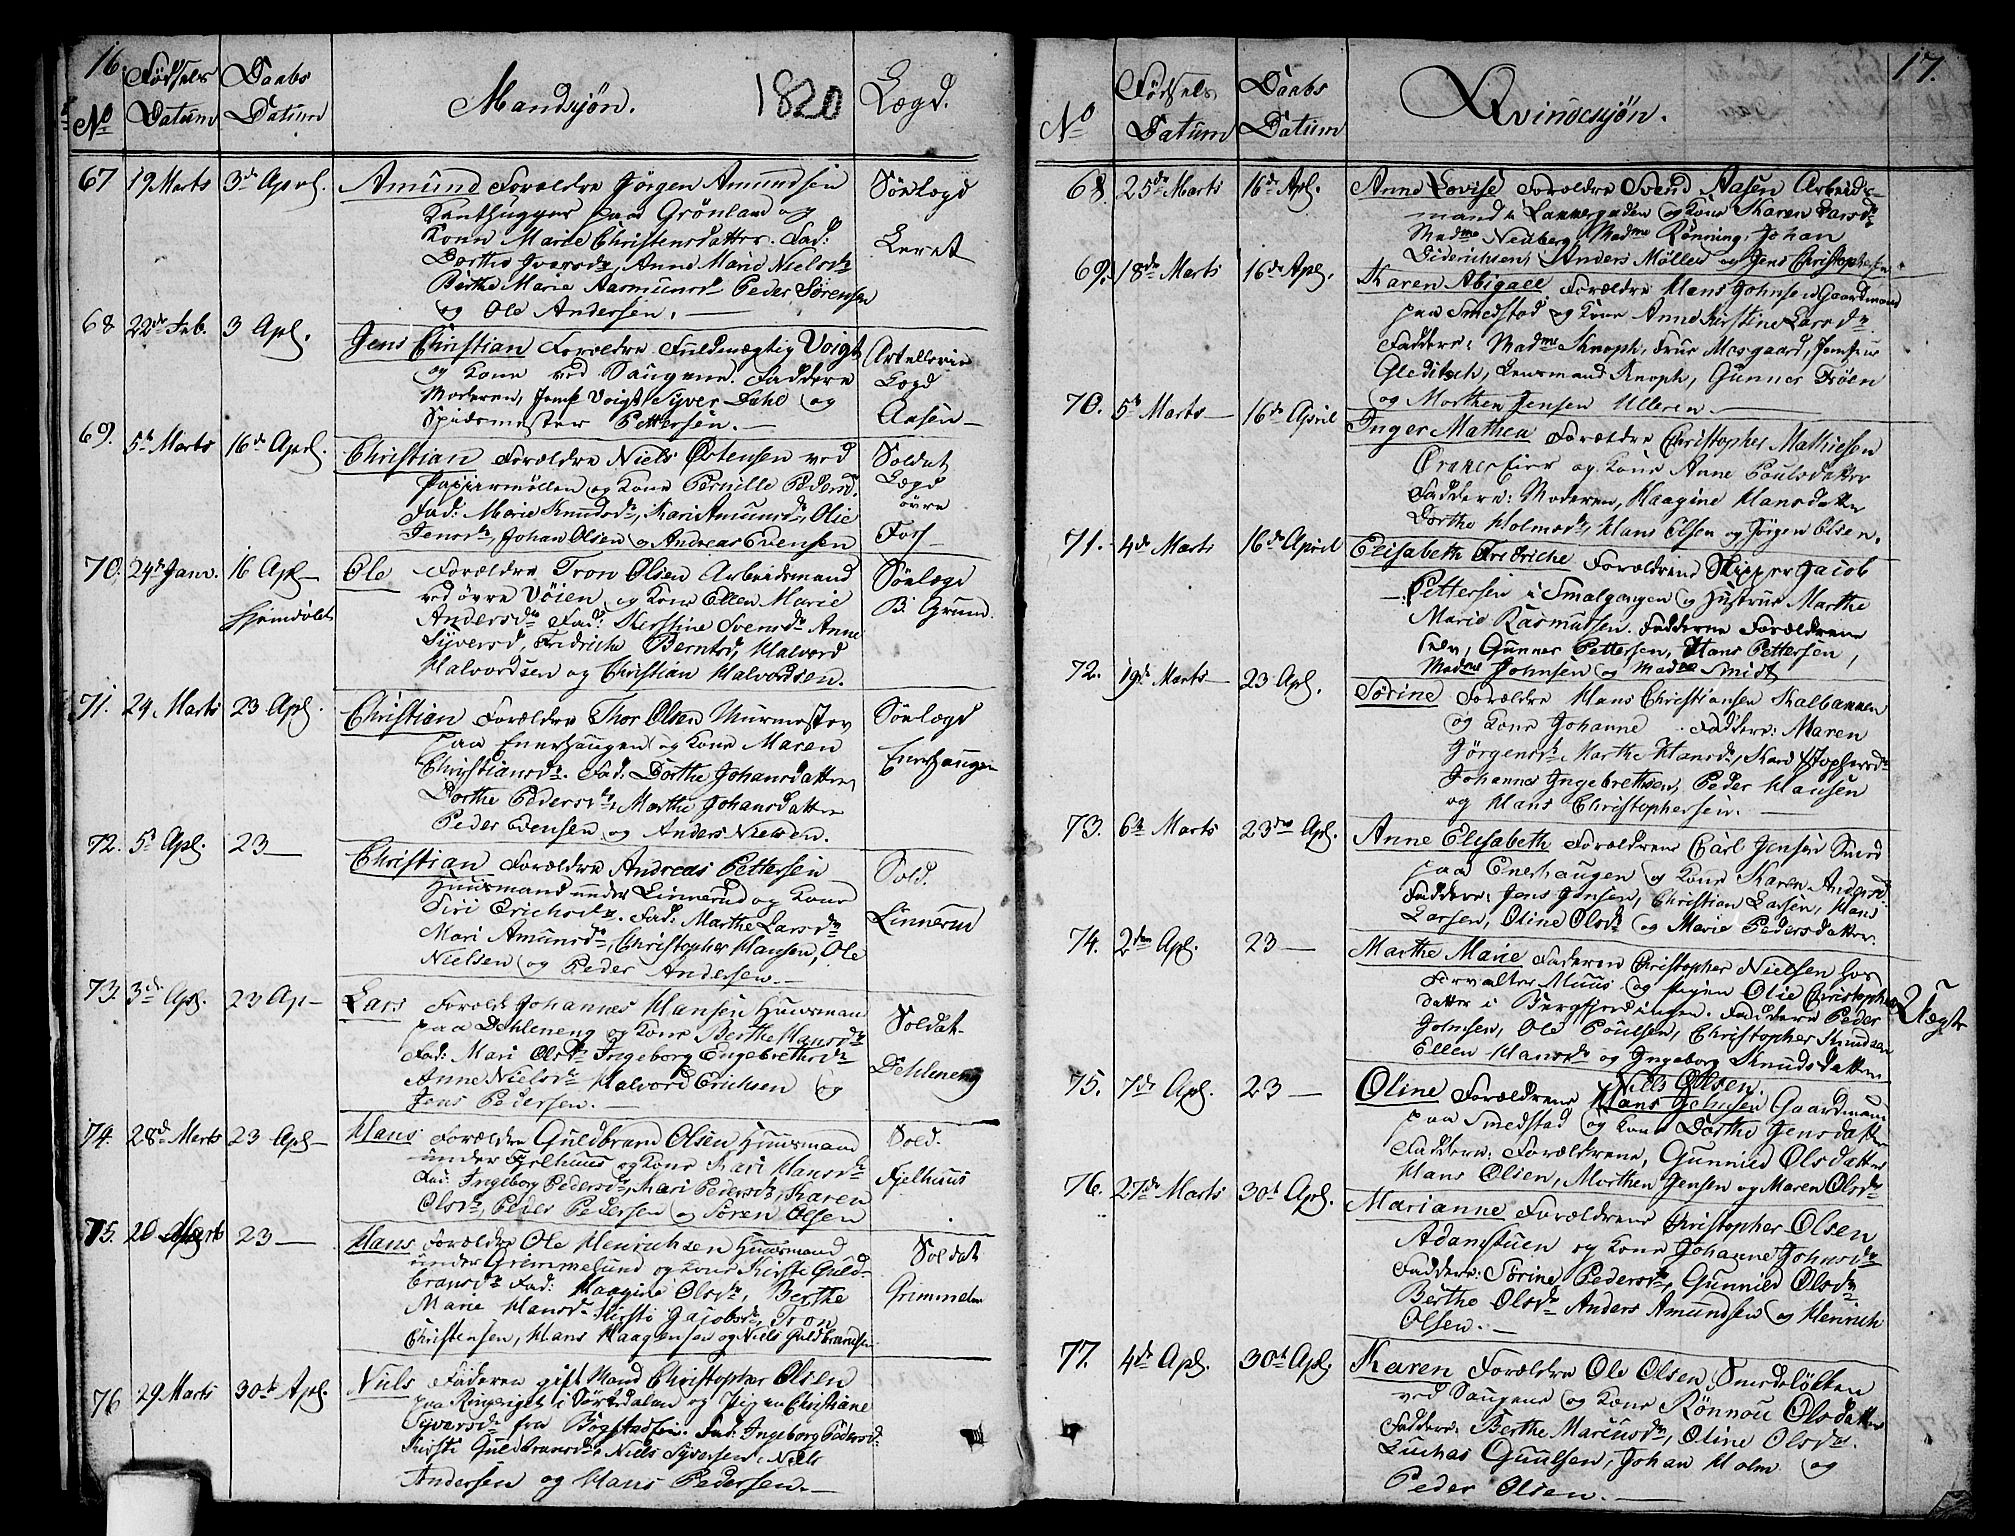 16.
Fødsels Daabs
No Datum Datum Mandkjøn. 1820 Lægd.
67 19 Marts 3de Aprl. Amund Forældre Jørgen Amundsen Søelægd
paa Grønland og
Kone Marie Christensdatter. Fad: Leret
Dorthe Iversdr, Anne Marie Nielsdr
Berthe Marie Aasmundsd Peder Sørensen
og Ole Andersen. —
68 22de Feb. 3 Apl. Jens Christian Forældre Fuldmægtig Voigt Artellerie
og Kone ved Saugene. Faddere Lægd
Moderen, Jomf Voigt, Syver Dahl og Aasen —
Spidsmester Pettersen. —
69. 5t Marts 16de Aprl. Christian Forældre Niels Østensen ved Soldat
Papiermøllen og Kone Pernille Pedersd. Lægd
Fad: Marie Knudsdr, Kari Amundsdr, Olie øvre
Jensdr, Johan Olsen og Andreas Evensen Fos
70. 24de Janr. 16 Apl — Ole Forældre Tron Olsen Arbeidsmand Søelægd
Hjemdøbt ved øvre Vøien og Kone Ellen Marie B: Grund.
Andersdr Fad: Kerstine Svensdr Anne
Syversd, Fredriche Berntsd, Halvord
Halvordsen og Christian Halvordsen.
71. 24 Marts 23 Apl. Christian Forældre Thor Olsen Murmester Søelægd
paa Enerhaugen og Kone Maren Enerhaugen
Christiansdr. Fad: Dorthe Johansdatter,
Dorthe Pedersdr, Marthe Johansdatter
Peder Evensen og Anders Nielsen.
72. 5t Apl. 23 — Christian Forældre Andreas Pettersen Sold.
Huusmand under Linnerud og Kone Linnerud
Siri Erichsdr. Fad: Marthe Larsdr
Mari Amunsdr, Christopher Hansen, Ole
Nielsen og Peder Andersen. —
73. 3de Apl. 23 Ap — Lars Foræld: Johannes Hansen Huusman Soldat
paa Dehleneng og Kone Berthe Hansdr Dehleneng
Fad: Mari Olsdr Ingeborg Engebrethsdr
Anne Nielsdr Halvord Erichsen og
Jens Pedersen. —
74. 28d Marts 23 Apl — Hans Forældre Guldbrand Olsen Huusmand Sold.
under Fjelhuus og Kone Kari Hansdr Fjelhuus
Fad: Ingeborg Pedersdr, Mari Pedersdr, Karen
Olsdr, Peder Pedersen og Søren Olsen
75. 20 Marts 23 — Hans Forældre Ole Henrichsen Huusmand Soldat
under Grimmelund og Kone Kirsti Guld-
bransdr Fad: Haagine Olsdr, Berthe Grimmelun
Marie Hansdr Kirsti Jacobsdr, Tron
Christensen, Hans Haagensen og Niels Guldbrandsen
76 29 Marts 30te Apl. Niels Faderen gift Mand Christopher Olsen
paa Ringeriget i Sørkedalen og Pigen Christiane
Syversdr fra Bogstad. Fad: Ingeborg Pedersdr
Kirsti Guldbransdr Niels Syversen, Niels
Andersen og Hans Pedersen. —
17.
Fødsels Daabs
No Datum Datum Qvindekjøn.
68 25de Marts 16de Apl. Anne Lovise Forældre Svend Aasen Arbeids-
mand i Lakkergaden og Kone Karen Larsdr
Madme Neuberg, Madme Rønning, Johan
Diderichsen, Anders Møller og Jens Christophersen.
69. 18de Marts 16de Apl. Karen Abigael Forældre Hans Johnsen Gaardmand
paa Smedstad og Kone Anne Kirstine Larsdr.
Faddere: Madme Knoph, Frue Maagaard, Jomfrue
Gleditsch, Lensmand Knoph, Gunner Frøen
og Morthen Jensen Ulleren —
70. 5t Marts — 16de April Inger Mathea Forældre Christopher Mathiesen
Eier og Kone Anne Poulsdatter
Faddere: Moderen, Haagine Hansdatter
Dorthe Holmsdr, Hans Olsen og Jørgen Olsen.
71. 4de Marts 16de April Elisabeth Fredriche Forældrene Skipper Jacob
Pettersen i Smalgangen og Hustrue Marthe
Marie Rasmussen. Fadderne Forældrene
selv, Gunner Pettersen, Hans Pettersen,
Madme Johnsen og Madme Smidt
72. 19de Marts — 23 Apl. Sørine Forældre Hans Christiansen Kalbakken
og Kone Johanne . Faddere: Maren
Jørgensdr Marthe Hansdr, Kari Stophersdr
Johannes Ingebrethsen, Peder Hansen
og Hans Christophersen. —
73. 6te Marts 23de Apl. Anne Elisabeth Forældrene Carl Jensen Smed
paa Enerhaugen og Kone Karen Andersd.
Faddere: Jens Jansen, Christian Larsen, Hans
Larsen, Oline Olsdr og Marie Pedersdatter.
74. 2den Apl. 23 — Marthe Marie Faderen Christopher Nielsen hos
Forvalter Muus og Pigen Olie Christopher 2 Ægte
datter i Bergfjerdingen. Faddere Peder
Johnsen, Ole Poulsen, Christopher Knudsen
Ellen Hansdr og Ingeborg Knudsdatter
Niels Olsen
75. 7de Apl. 23 — Oline Forældrene Hans Johnsen Gaardmand
paa Smedstad og Kone Dorthe Jensdatter
Faddere: Forældrene, Gunnild Olsdatter
Hans Olsen, Morthen Jensen og Maren Olsdr
76. 27de Marts 30te Apl. Marianne Forældrene Christopher Olsen
Adamstuen og Kone Johanne Johnsdr
Faddere: Sørine Pedersdr, Gunnild Olsdr
Berthe Olsdr Anders Amundsen og Henrich
Olsen. —
77. 4de Apl. 30te Apl. Karen Forældre Ole Olsen Smedsløkken
ved Saugene og Kone Rønnou Olsdatter
Faddere: Berthe Mariusdr, Oline Olsdr.
Luchas Guulsen, Johan Holm og
Peder Olsen. —